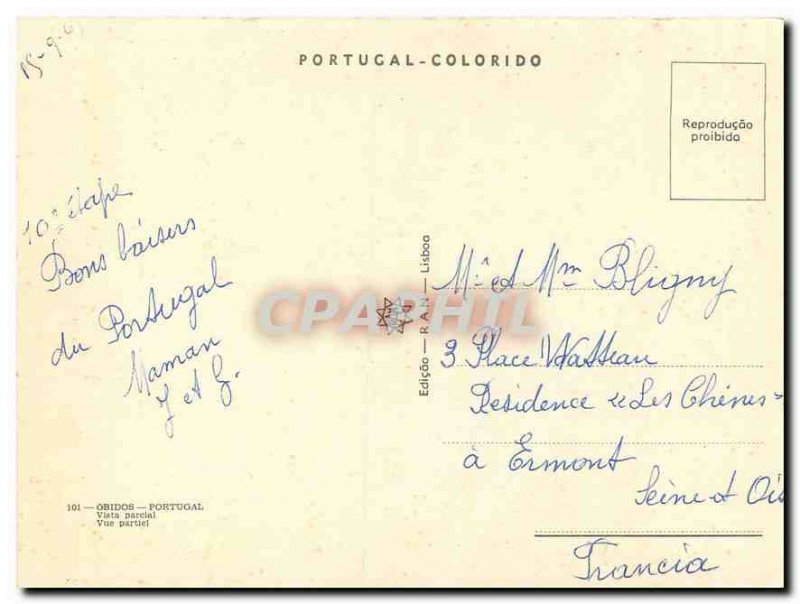 15-9-6
PORTUGAL-COLORIDO
Reprodução
proibida
10e étape
Bons baisers
du Portugal
Maman
J et G.
Edição — R.A.N — Lisboa
Mr et Mm Bligny
3 Place Watteau
Residence "Les Chênes"
à Ermont
Seine et Ois
Francia
101 — ÓBIDOS — PORTUGAL
Vista parcial
Vue partiel
CPAPHIL